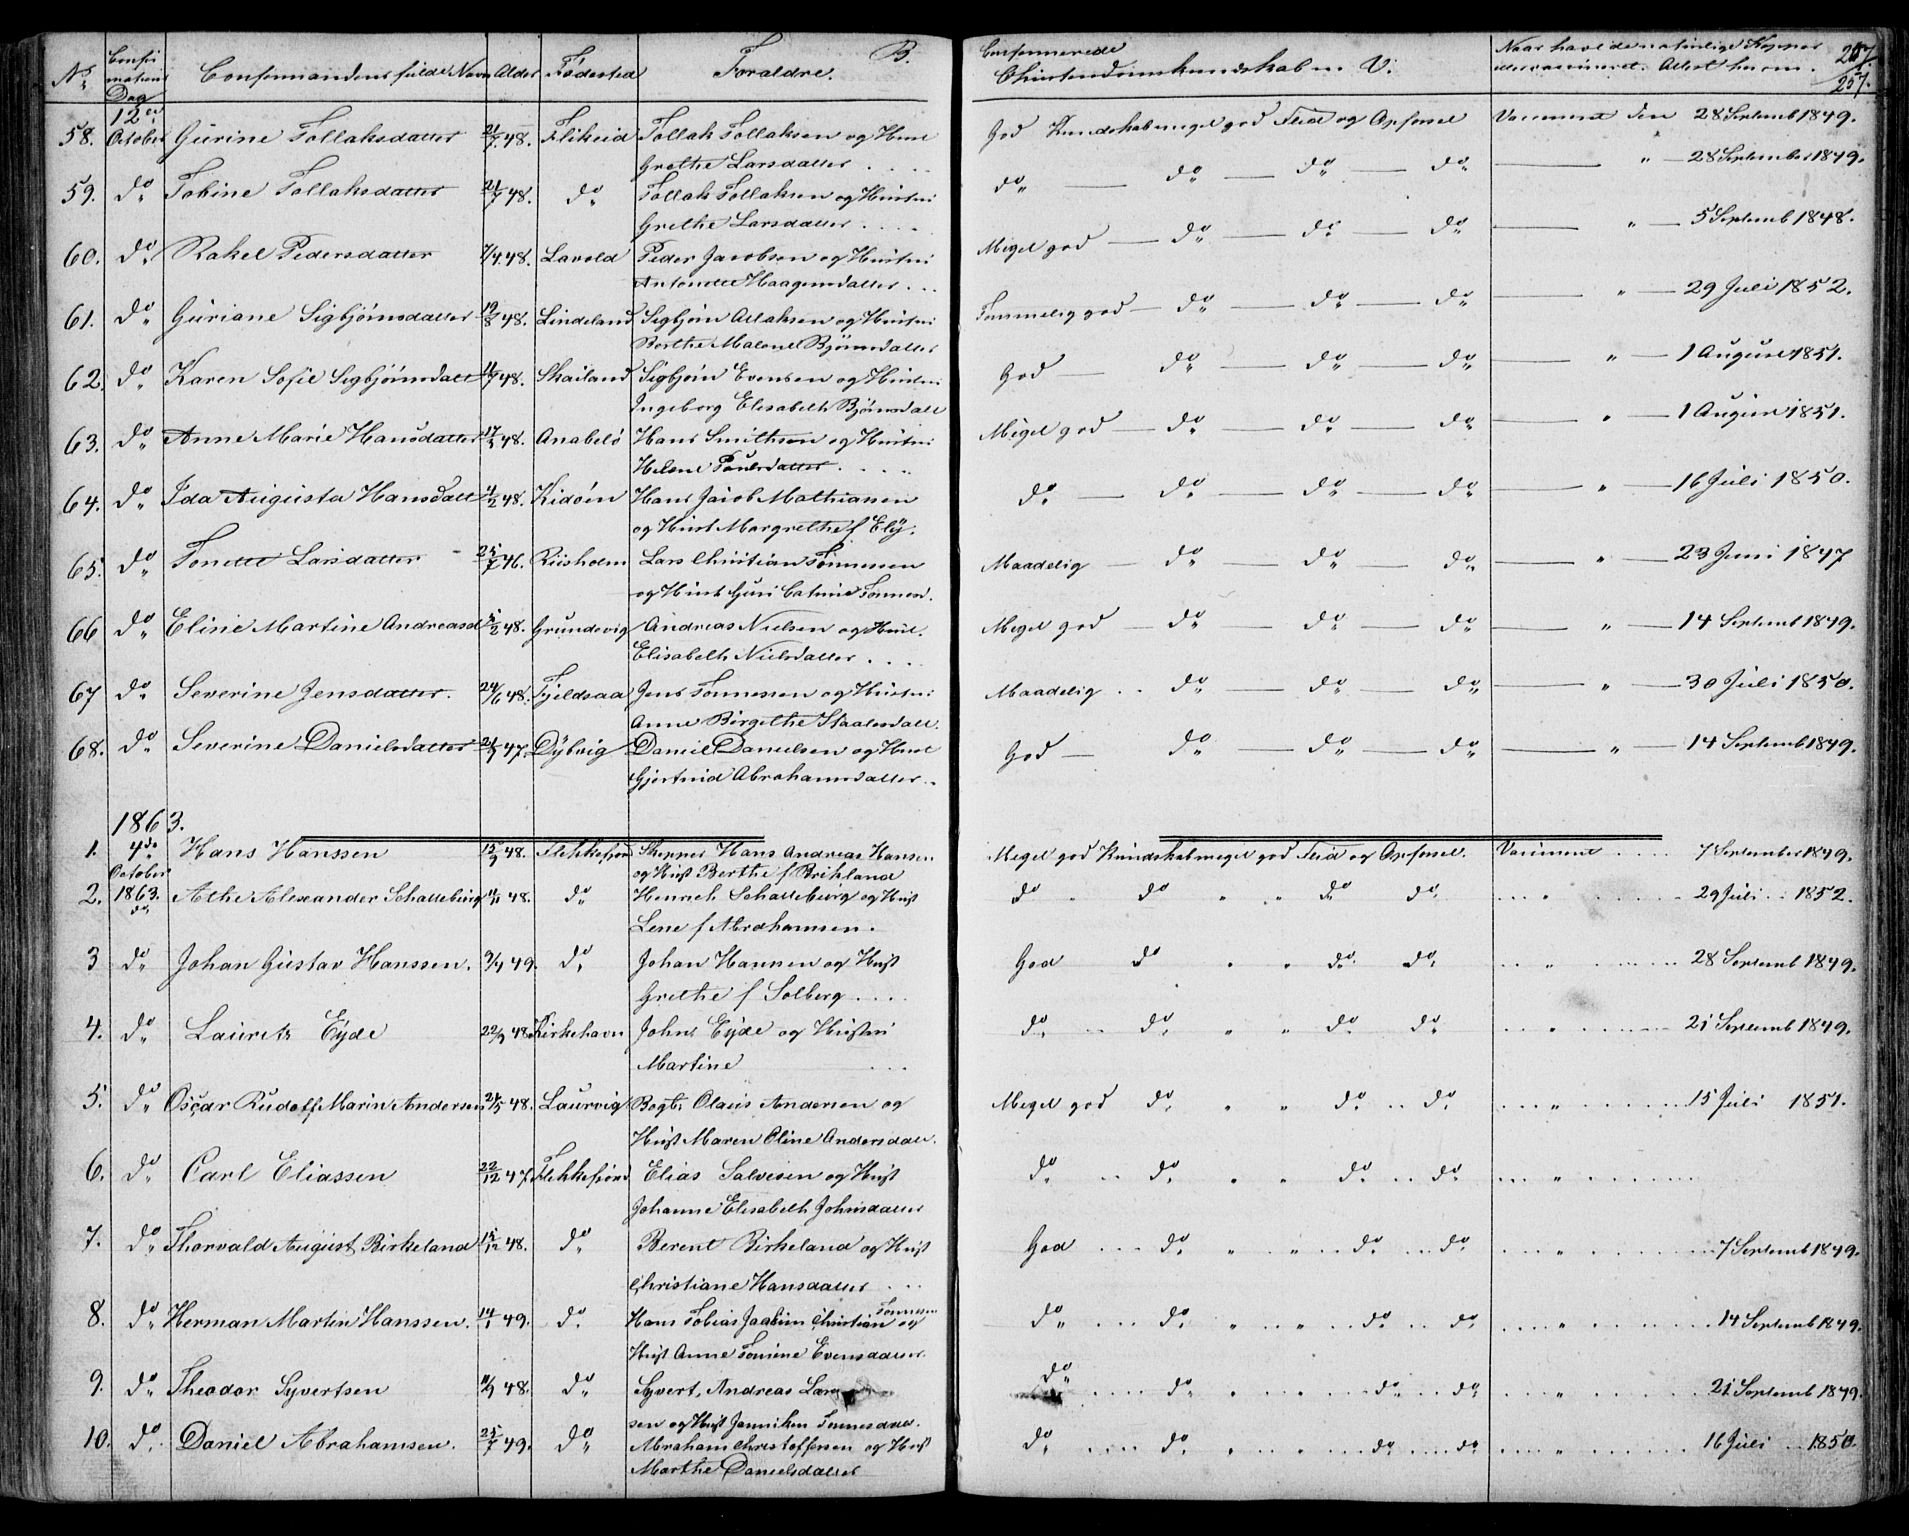 No Confirmations Dag Confirmandens fulde Navn Alder Fødested Forældre. B. Confirmerede Christendomskundskab m. V: Naar havt de naturlige Kopper eller vaccineret. Attest herom. 257.
12te
58. October Gurine Tollaksdatter 21/7 48. Flikeid Tollak Tollaksen og Hust God Kundskab meget god Flid og Opførsel Vaccineret den 28 Septemb 1849.
Grethe Larsdatter . . . .
59. do Tobine Tollaksdatter 21/7 48. do Tollak Tollaksen og Hustru do — do — do — do — " — 28 September 1849.
Grethe Larsdatter . . . .
60. do Rakel Pedersdatter 7/4 48. Lavold Peder Jacobsen og Hustru Meget god — do — do — do — " — 5 Septemb 1848.
Antonette Haagensdatter . . .
61. do Guriane Sigbjørnsdatter 19/8 48. Lindeland Sigbjørn Atlaksen og Hustru Temmelig god — do — do — do — " — 29 Juli 1852.
Berthe Malene Bjørnsdatter
62. do Karen Sofie Sigbjørnsdatt 48. Skailand Sigbjørn Evensen og Hustru God — do — do — do — " — 1 August 1851.
Ingeborg Elisabeth Bjørnsdatt
63. do Anne Marie Hansdatter 48. Anabelø Hans Smithsen og Hustru Meget god — do — do — do — " — 1 August 1851.
Helene Paulsdatter . . . .
64. do Ida Augusta Hansdatt 48. Kidøen Hans Jacob Mathiasen do — do — do — do — " — 16 Juli 1850.
og Hust Margrethe f Ely.
65. do Tonette Larsdatter 25/7 46. Riisholm Lars Christian Tønnesen Maadelig — do — do — do — " — 23 Juni 1847
og Hust Guri Catrine Tønnes.
66 do Eline Martine Andreasd 48. Grundevig Andreas Nielsen og Hust. Meget god — do — do — do — " — 14 Septemb 1849.
Elisabeth Nielsdatter . . . .
67 do Severine Jensdatter. 24/6 48. Fjeldsaa Jens Tønnessen og Hustru Maadelig . . do — do — do — " — 30 Juli 1850.
Anne Birgithe Staalesdatt.
68. do Severine Danielsdatter 47. Dybvig Daniel Danielsen og Hust God — do — do — do — " — 14 Septemb 1849.
Gjertruid Abrahamsdatter . .
1863.
1. 4de Hans Hanssen 15/9 48. Flekkefjord Skipper Hans Andreas Hansen Meget god Kundskab meget god Flid og Opførsel. Vaccineret . . . . 7 September 1849.
October og Hust Berthe f Birkland
2. 1863. do Athe Alexander Schatteburg 48. do Henrich Schatteburg og Hust do do " " do do . . . " . . . . 29 Juli . . 1852.
Lene f Abrahamsen.
3 do Johan Gustav Hanssen. 9/4 49. do Johan Hansen og Hust God do " " do do . . " . . . . . 28 Septemb 1849.
Grethe f Solberg . . . .
4. do Lauritz Eyde 22/9 48. Kirkehavn John Eyde og Hustru do . . do " " do do . . . " . . . . . 21 Septemb 1849.
Martine . . .
5. do Oscar Rudolf Marin Andersen 24/5 48. Laurvig Bogb. Olaus Andersen og Meget god do " " do . . do . . . " . . . . . 15 Juli 1851.
Hust Maren Oline Andersdatt.
6. do Carl Eliassen 22/12 47. Flekkefjord Elias Salvesen og Hust do . . do " " do . . do . . . " . . . . .
Johanne Elisabeth Johnsdatter
7. do Thorvald August Birkeland 15/12 48. do Berent Birkeland og Hust God . . . do " " do . . do . . . " . . . . . 7 Septemb 1849.
Christiane Hansdatter . . .
8. do Herman Martin Hanssen. 14/1 49. do Hans Tobias Joakim Christian Tønnesen og do . . . do " " do . . do . . . . " . . . . . 14 Septemb 1849.
Hust Anne Tomine Evensdatter.
9. do Theodor Syvertsen 11/9 48. do Syvert Andreas do . . . . do " " do . . do . . . . " . . . . . 21 Septemb 1849.
sen og Hust Janniken Tønnesdatt.
10. do Daniel Abrahamsen. 25/7 49. do Abraham Christoffersen og Hust do . . . . do " " do . . do . . . . " . . . . . 16 Juli . . 1850.
Marthe Danielsdatter